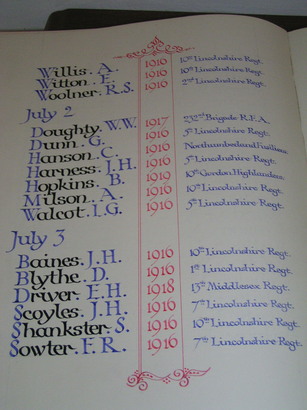 Willis. A. 1916 10th Lincolnshire Regt.
Witton. E. 1916 10th Lincolnshire Regt.
Woolner. R.S. 1916 2nd Lincolnshire Regt.
July 2
Doughty. W.W. 1917 232nd Brigade R.F.A.
Dunn. G. 1916 5th Lincolnshire Regt.
Hanson. C. 1916 Northumberland Fusiliers
Harness. J.H. 1916 5th Lincolnshire Regt.
Hopkins. B. 1916 10th Gordon Highlanders
Milson. A. 1916 10th Lincolnshire Regt.
Walcot. L.G. 1916 5th Lincolnshire Regt.
July 3
Baines. J.H. 1916 10th Lincolnshire Regt.
Blythe. D. 1916 1st Lincolnshire Regt.
Driver. E.H. 1918 13th Middlesex Regt.
Scoyles. J.H. 1916 7th Lincolnshire Regt.
Shankster. S. 1916 10th Lincolnshire Regt.
Sowter. F.R. 1916 7th Lincolnshire Regt.